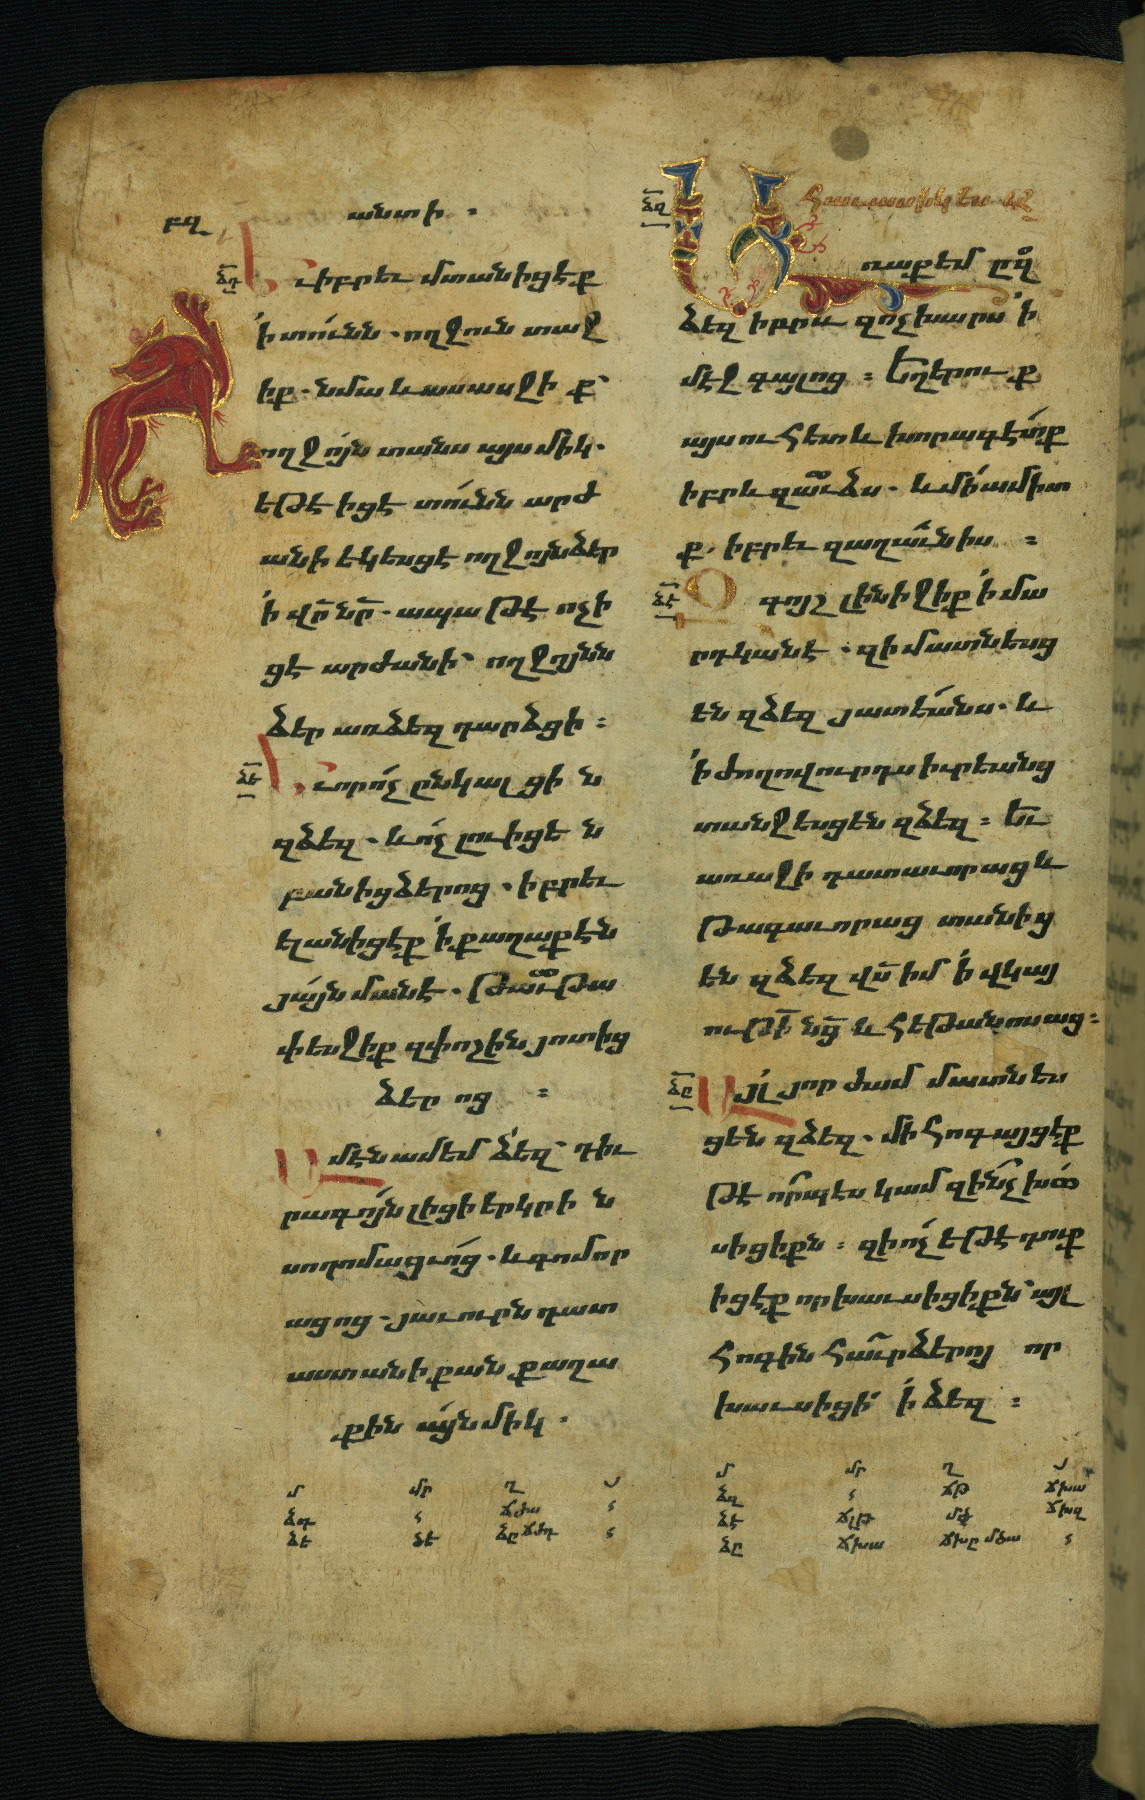 անտի ։
Եւ իբրեւ մտանիցէք
ի տունն . ողջուն տաջ
իք . նմա և ասասջիք՝
ողջոյն տանս այսմիկ .
եթէ իցէ տունն արժ
անի եկեսցէ ողջոյն ձեր
ի վր նր . ապա թէ ոչ ի
ցէ արժանի՝ ողջոյնն
ձեր առ ձեզ դարձցի ։
ձե
Եւ որ ոչ ընկալցին
զձեզ . և ոչ լուիցեն
բանից ձերոց . իբրեւ
ելանիցէք ի քաղաքէն
յայնմանէ . թաւթա
փեսջիք զփոշին յոտից
ձերոց ։
Ամէն ասեմ ձեզ՝ դիւ
րագոյն լիցի երկրին
սոդոմացւոց . և գոմոր
ացոց . յաւուրն դատ
աստանի քան քաղա
քին այնմիկ .
մ մր ղ յ
ձդ
ձե ձե
ձզ
Ահաւասիկ ես
առաքեմ
ձեզ իբրև զոչխարս ի
մէջ գայլոց ։ Եղերուք
այսուհետև խորագէտք
իբրև զաւձս . և միամիտ
ք . իբրեւ զաղաւնիս ։
ձէ
Զգոյշ լինիջիք ի մա
րդկանէ . զի մատնեսց
են զձեզ յատեանս . և
ի ժողովուրդս իւրեանց
տանջեսցեն զձեզ ։ Եւ
առաջի դատաւորաց և
թագաւորաց տանից
են զձեզ վս իմ ի վկայ
ութի նց և հեթանոսաց ։
ձը
Այլ յորժամ մատնես
ցեն զձեզ . մի հոգայցէք
թէ որպէս կամ զինչ խօ
սիցիքն ։ զի ոչ եթէ դուք
իցէք որ խաւսիցիքն՝ այլ
հոգին հաւր ձերոյ որ
խաւսիցի ի ձեզ ։
մ մր ղ յ
ձզ ճթ ճխա
ձէ ճլթ
ձը ճխա